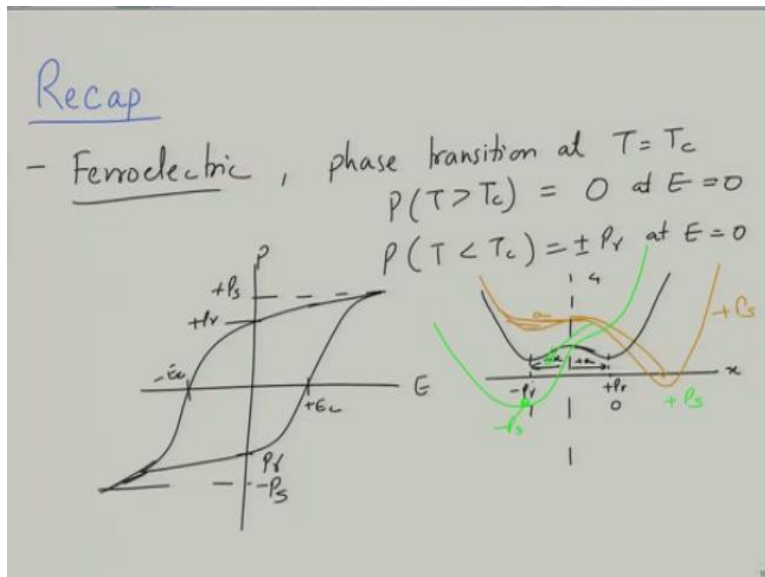 Recap
- Ferroelectric, phase transition at T = Tc
P(T > Tc) = 0 at E = 0
P(T < Tc) = ± Pr at E = 0
P
+Ps
+Pr
-Ec
+Ec
E
Pr
-Ps
+Ps
x
-Pr
+Pr
0
-Ps
+Ps